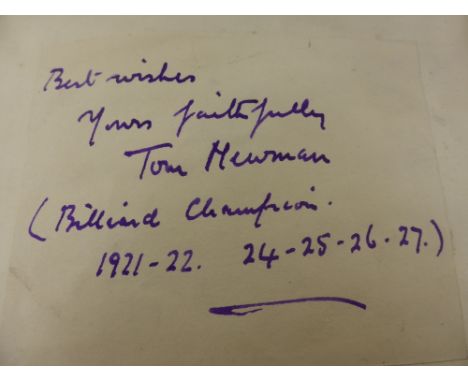 Best wishes
Yours faithfully
Tom Newman
(Billiard Champion.
1921-22. 24-25-26-27.)